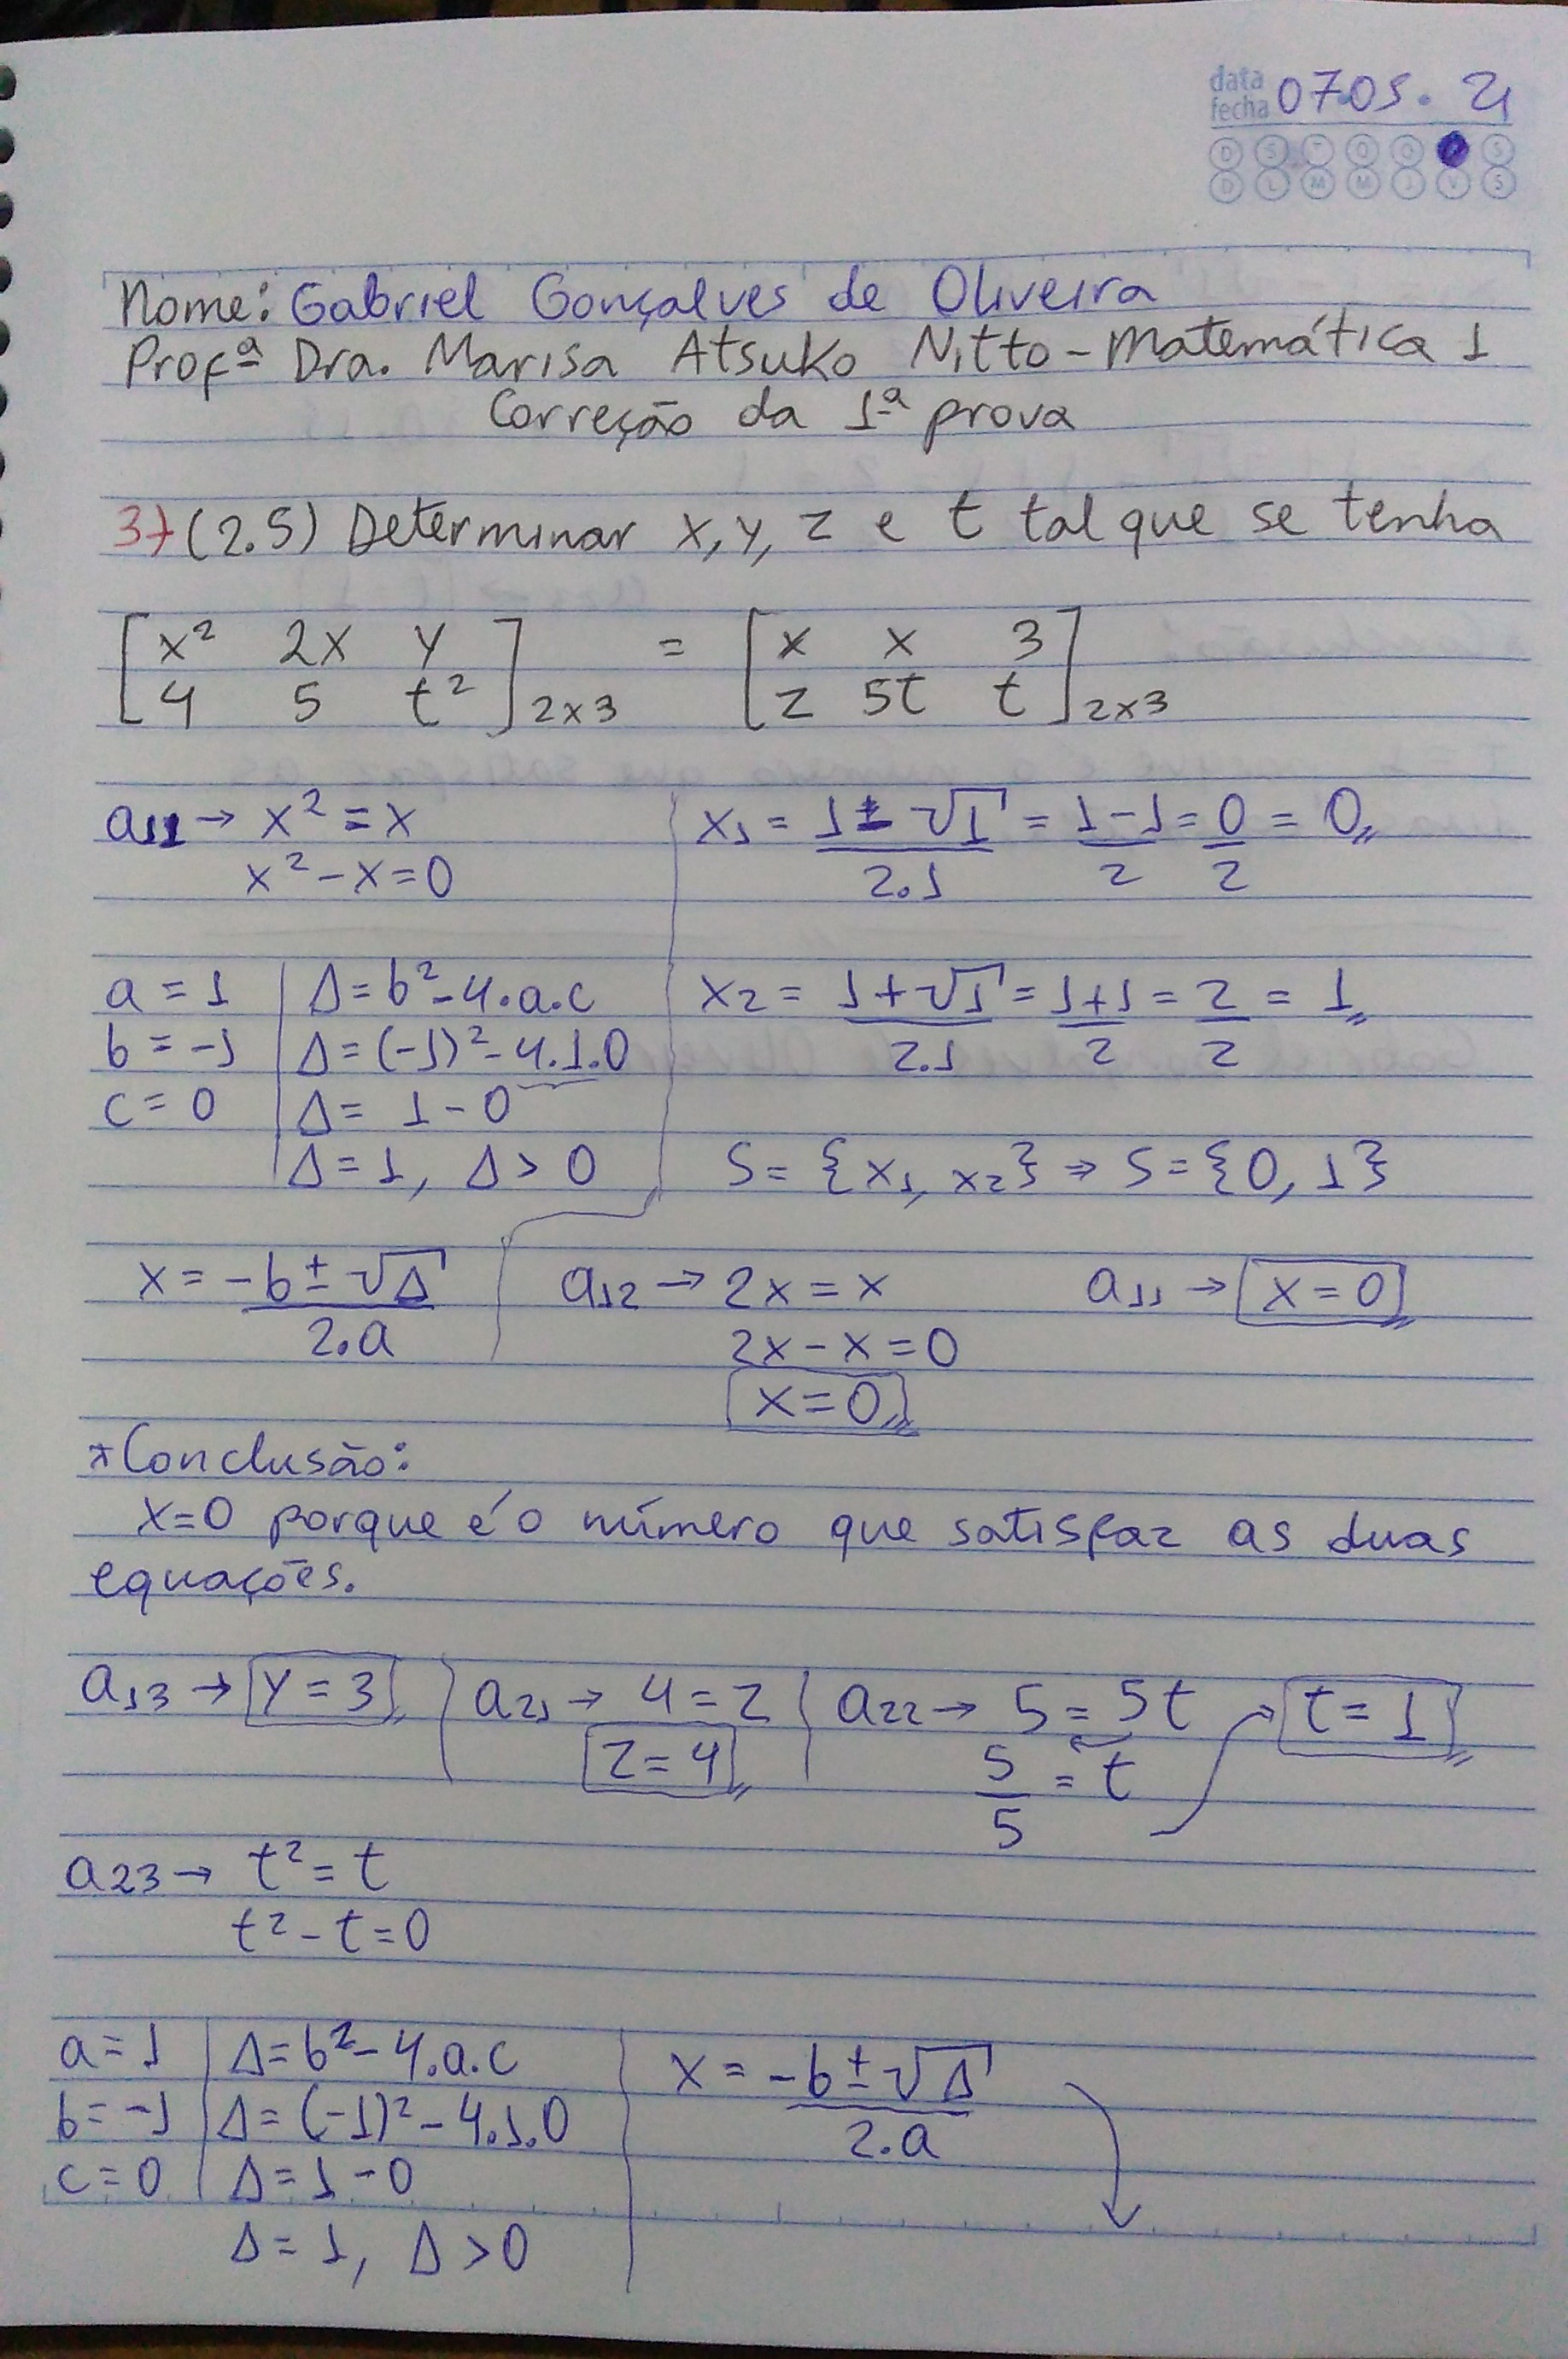 data
fecha 07.05.21
D S T Q Q S S
D L M M J V S
Nome: Gabriel Gonçalves de Oliveira
Profª Dra. Marisa Atsuko Nitto - Matemática 1
Correção da 1ª prova
3) (2.5) Determinar x, y, z e t tal que se tenha
[x² 2x y = [x x 3
4 5 t²]2x3 z 5t t]2x3
a11 → x² = x
x² - x = 0
x1 = 1 - √1 / 2.1 = 1-1 / 2 = 0 / 2 = 0
a = 1 | Δ = b² - 4.a.c
b = -1 | Δ = (-1)² - 4.1.0
c = 0 | Δ = 1 - 0
Δ = 1, Δ > 0
x2 = 1 + √1 / 2.1 = 1+1 / 2 = 2 / 2 = 1
S = {x1, x2} ⇒ S = {0, 1}
x = -b ± √Δ / 2.a
a12 → 2x = x
2x - x = 0
x = 0
a11 → x = 0
*Conclusão:
x=0 porque é o número que satisfaz as duas
equações.
a13 → y = 3
a21 → 4 = z
z = 4
a22 → 5 = 5t
5/5 = t → t = 1
a23 → t² = t
t² - t = 0
a = 1 | Δ = b² - 4.a.c
b = -1 | Δ = (-1)² - 4.1.0
c = 0 | Δ = 1 - 0
Δ = 1, Δ > 0
x = -b ± √Δ / 2.a